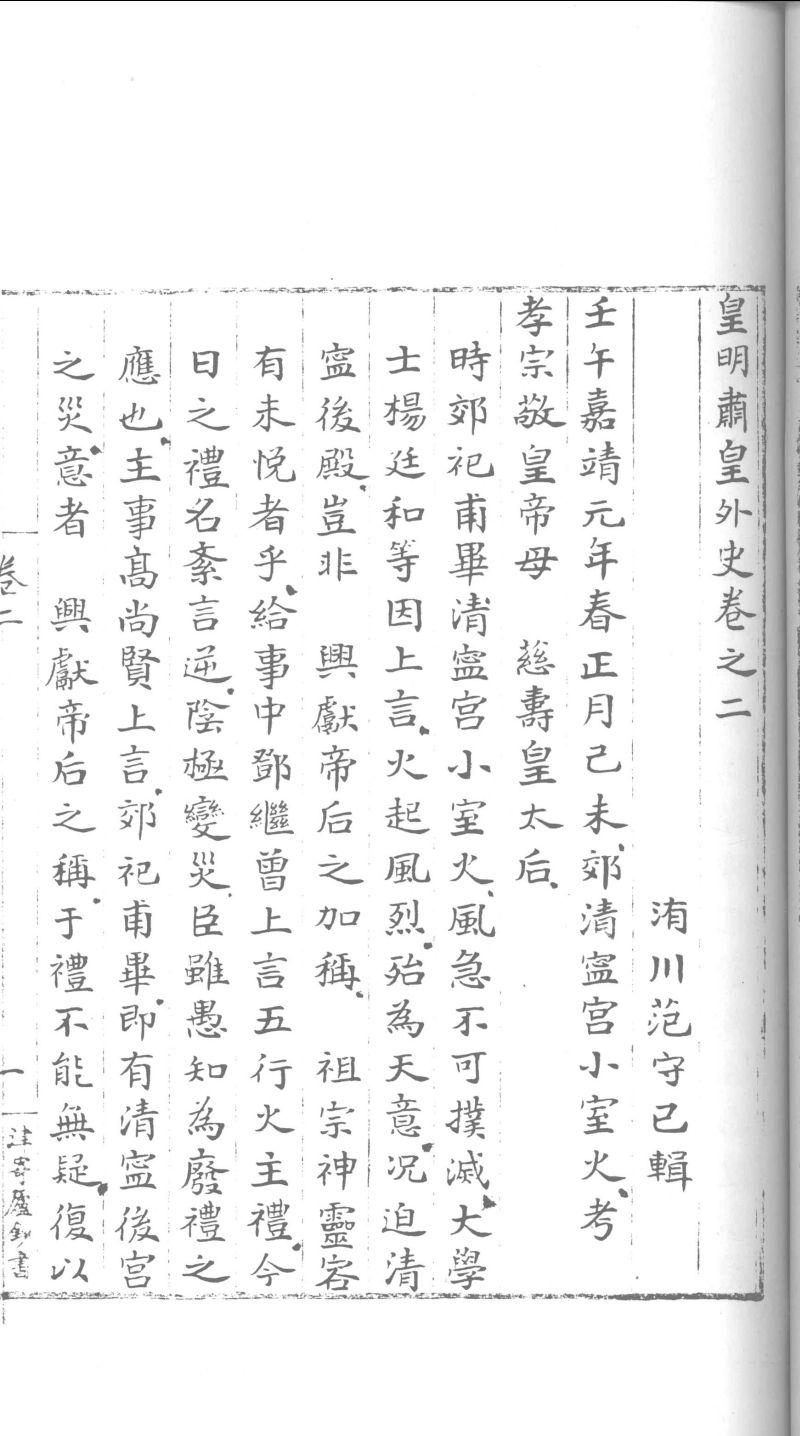 皇明肅皇外史卷之二
洧川范守己輯
壬午嘉靖元年春正月己未、郊清寍宫小室火、考
孝宗敬皇帝母　慈壽皇太后、
時郊祀甫畢清寍宫小室火、風急不可撲滅、大學
士楊廷和等因上言、火起風烈、殆為天意、况迫清
寍後殿、豈非　興獻帝后之加稱、　祖宗神靈容
有未悦者乎、給事中鄧繼曾上言五行火主禮、今
日之禮名紊言逆、陰極變災、臣雖愚知為廢禮之
應也、主事髙尚賢上言、郊祀甫畢、即有清寍後宫
之災、意者　興獻帝后之稱、于禮不能無疑、復以
卷二
一
津寄廬鈔書